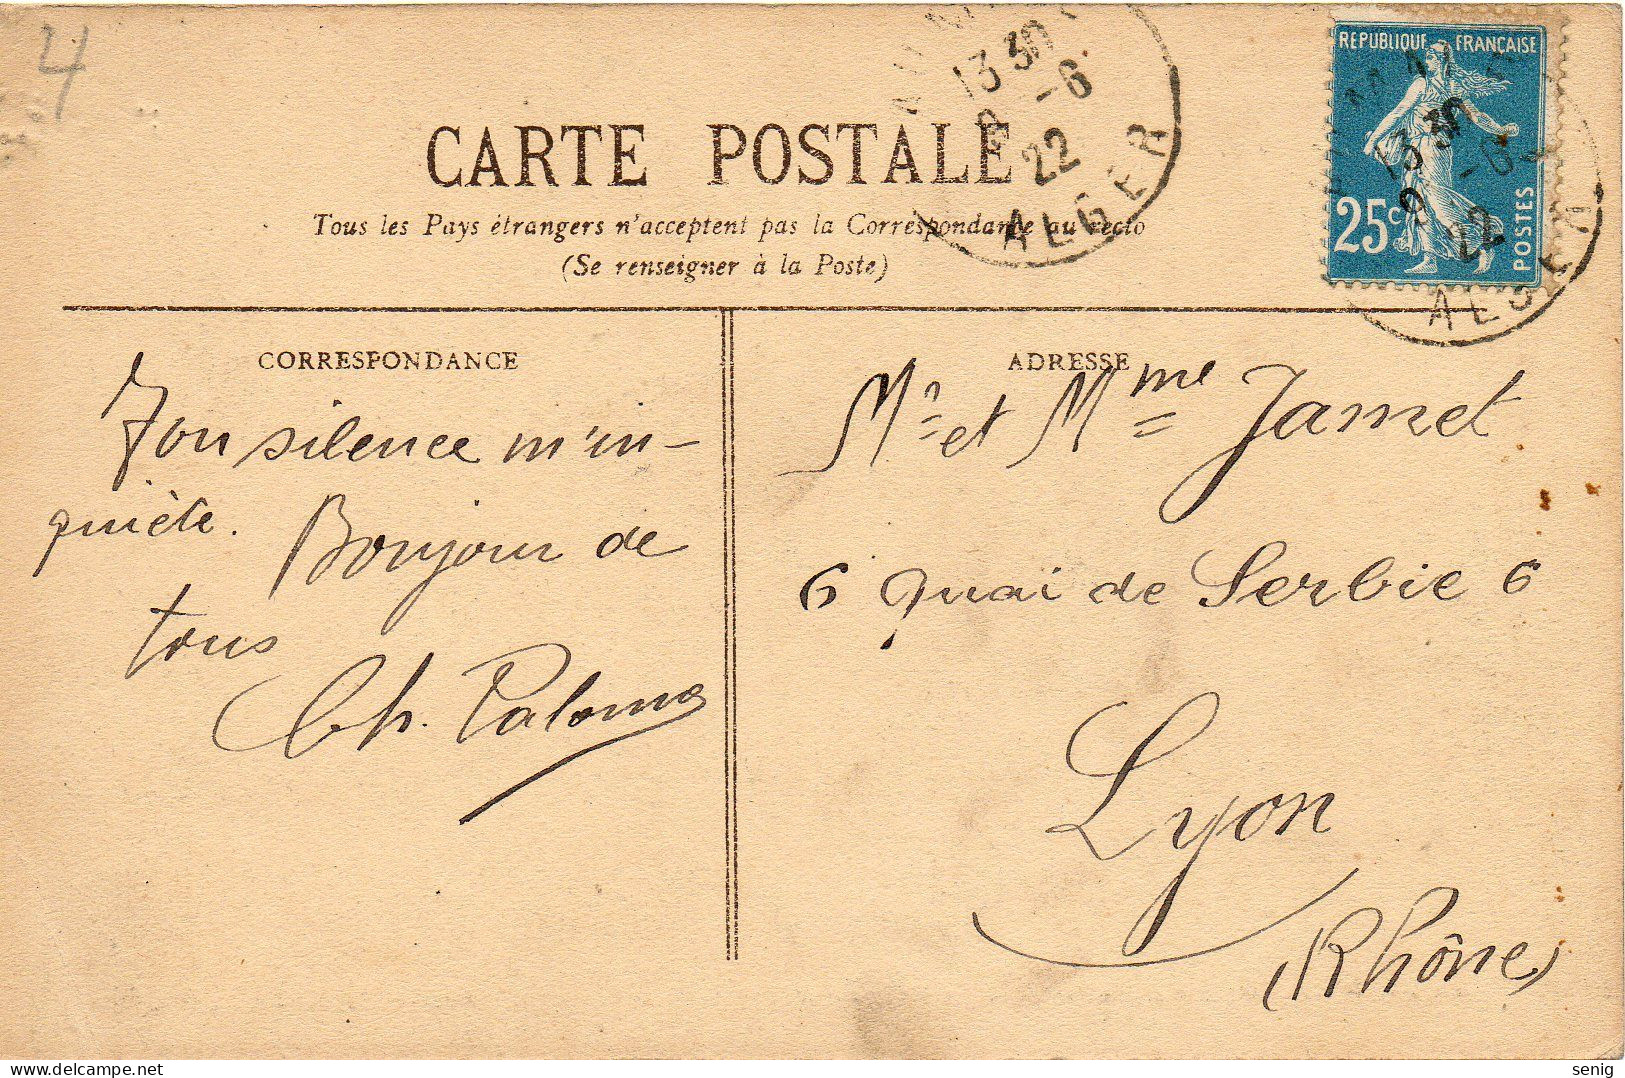 4
CARTE POSTALE
Tous les Pays étrangers n'acceptent pas la Correspondance au recto
(Se renseigner à la Poste)
13 30
9 -6
22
ALGER
REPUBLIQUE FRANÇAISE
25c
POSTES
13 30
9 -6
22
ALGER
CORRESPONDANCE
Ton silence m'in-
quiète. Bonjour de
tous
Ch. Paloma
ADRESSE
Mr et Mme Jamet
6 Quai de Serbie 6
Lyon
(Rhône)
delcampe.net
senig